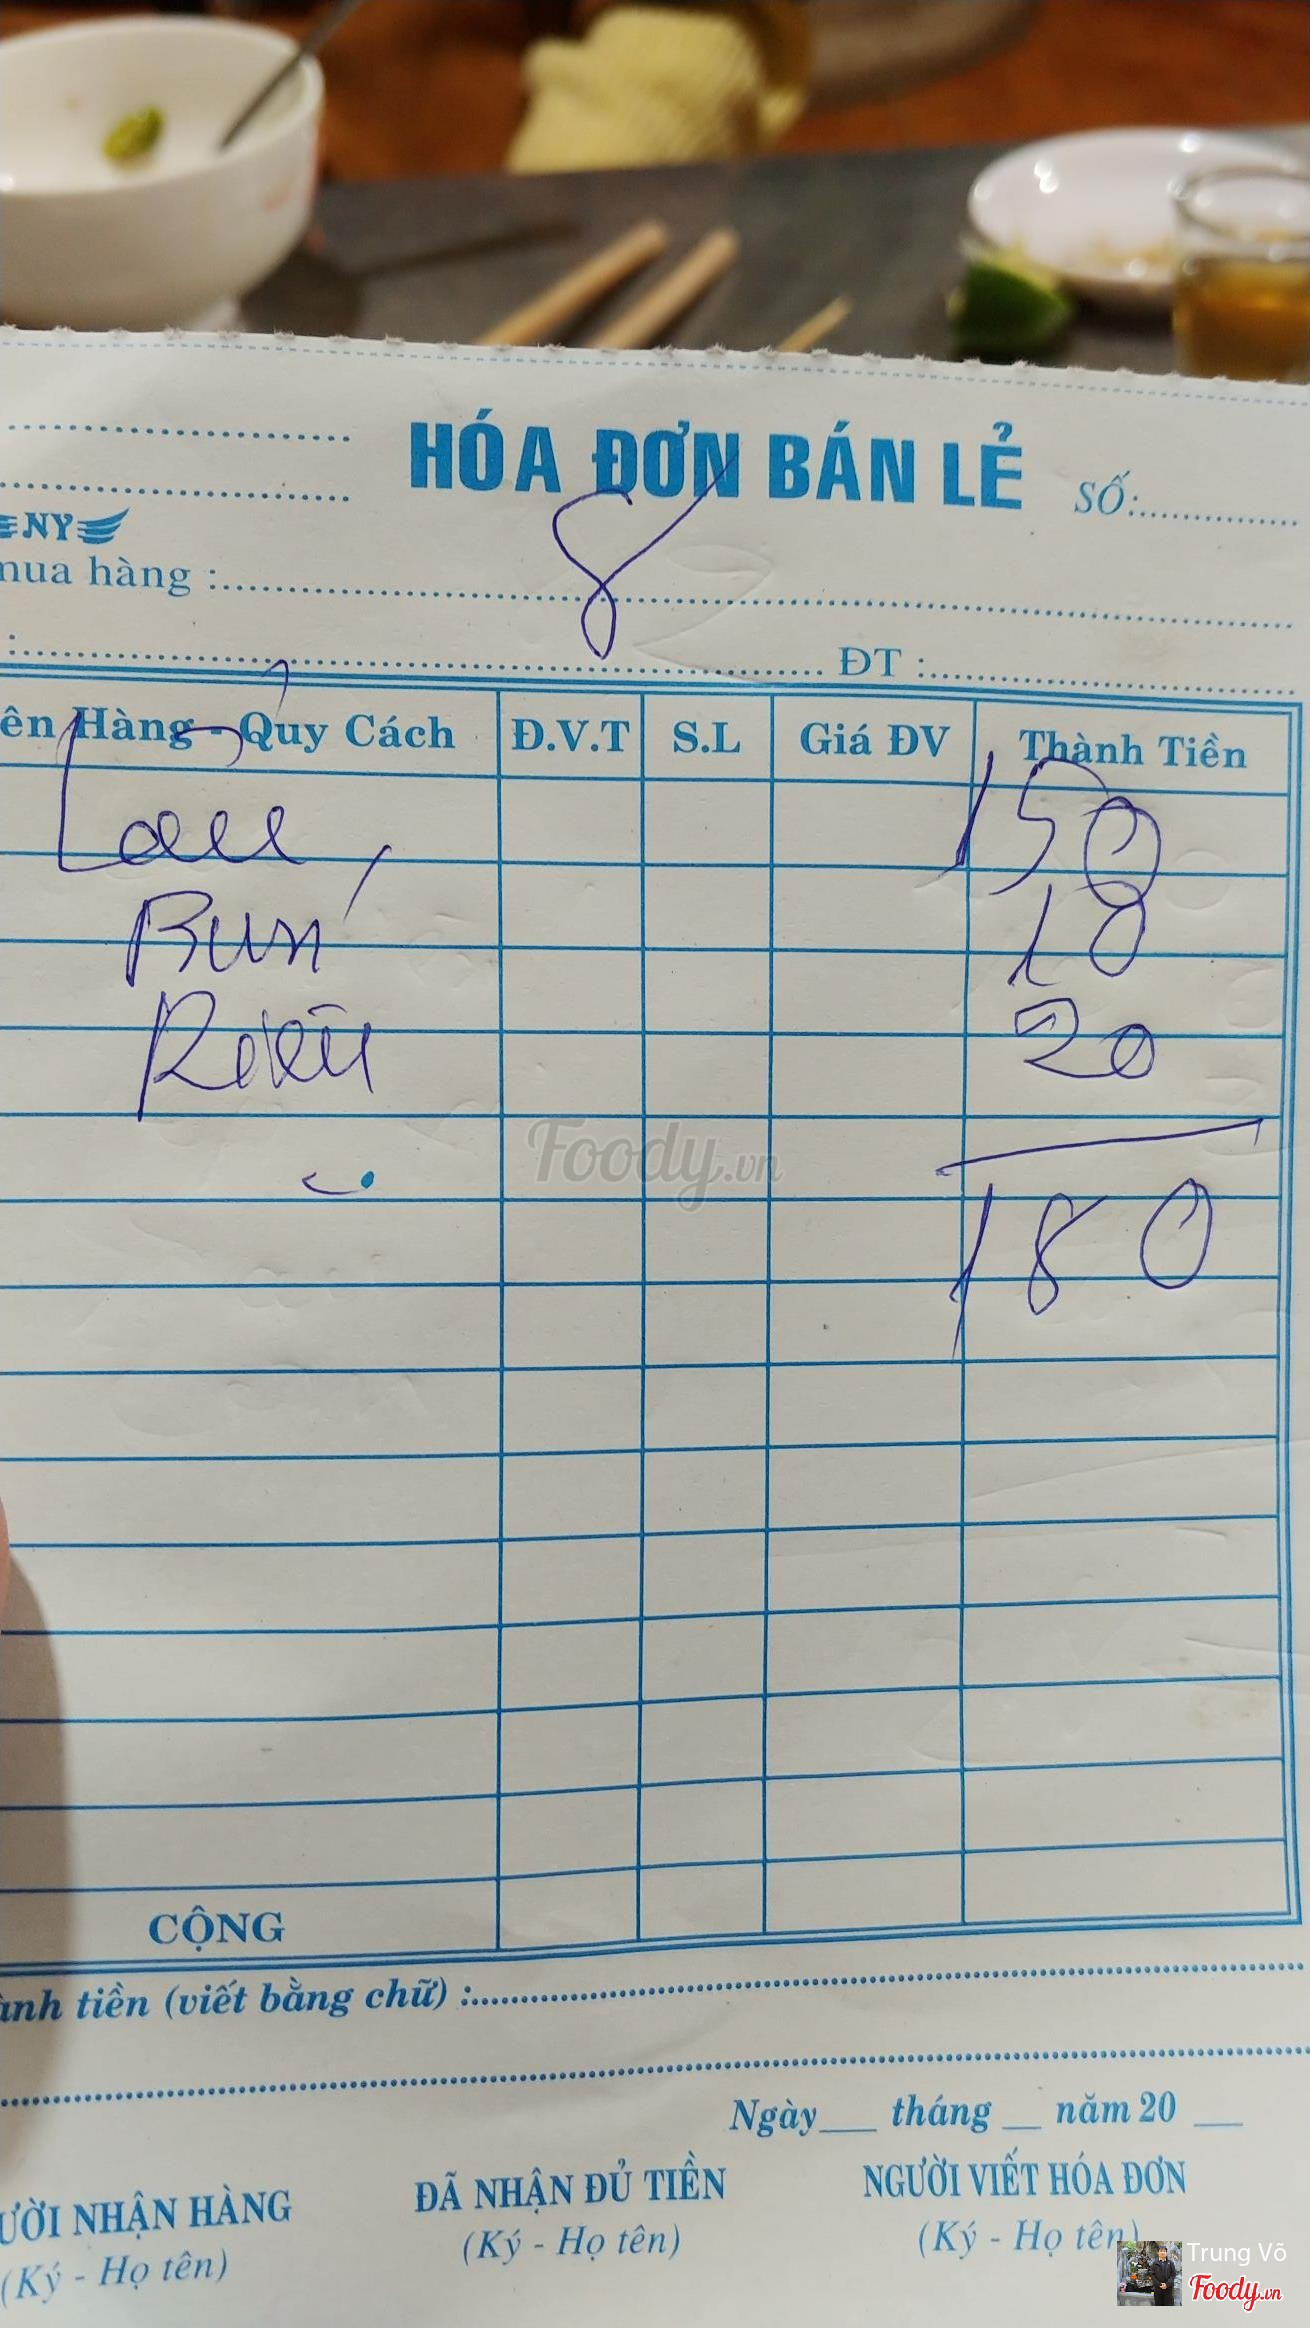 HÓA ĐƠN BÁN LẺ SỐ:
NY
mua hàng :
8
: ĐT :
ên Hàng - Quy Cách Đ.V.T S.L Giá ĐV Thành Tiền
Lẩu 150
Bún 10
Rượu 20
180
Foody.vn
CỘNG
ành tiền (viết bằng chữ) :
Ngày tháng năm 20
ƯỜI NHẬN HÀNG ĐÃ NHẬN ĐỦ TIỀN NGƯỜI VIẾT HÓA ĐƠN
(Ký - Họ tên) (Ký - Họ tên) (Ký - Họ tên)
Trung Võ
Foody.vn